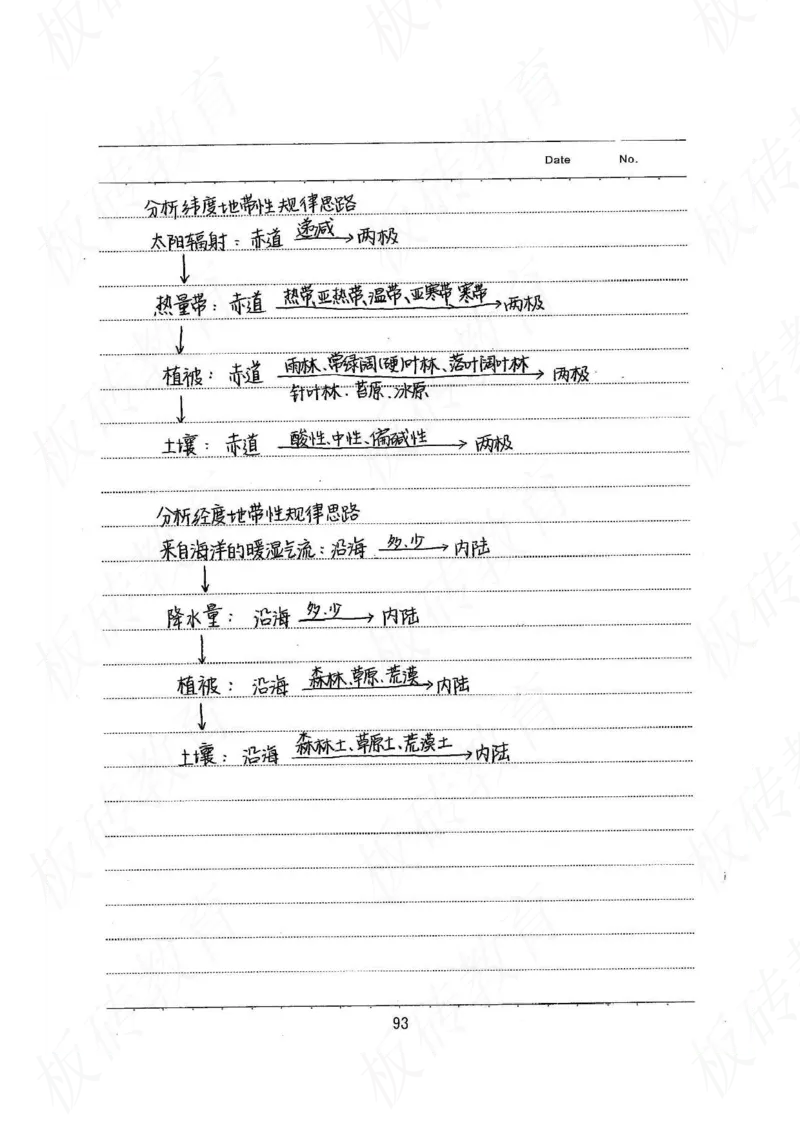 Date No.
分析纬度地带性规律思路
太阳辐射：赤道 递减 → 两极
↓
热量带：赤道 热带、亚热带、温带、亚寒带、寒带 → 两极
↓
植被：赤道 雨林、常绿阔(硬)叶林、落叶阔叶林 → 两极
针叶林、苔原、冰原
↓
土壤：赤道 酸性、中性、偏碱性 → 两极
分析经度地带性规律思路
来自海洋的暖湿气流：沿海 多、少 → 内陆
↓
降水量：沿海 多、少 → 内陆
↓
植被：沿海 森林、草原、荒漠 → 内陆
↓
土壤：沿海 森林土、草原土、荒漠土 → 内陆
93
板砖教育